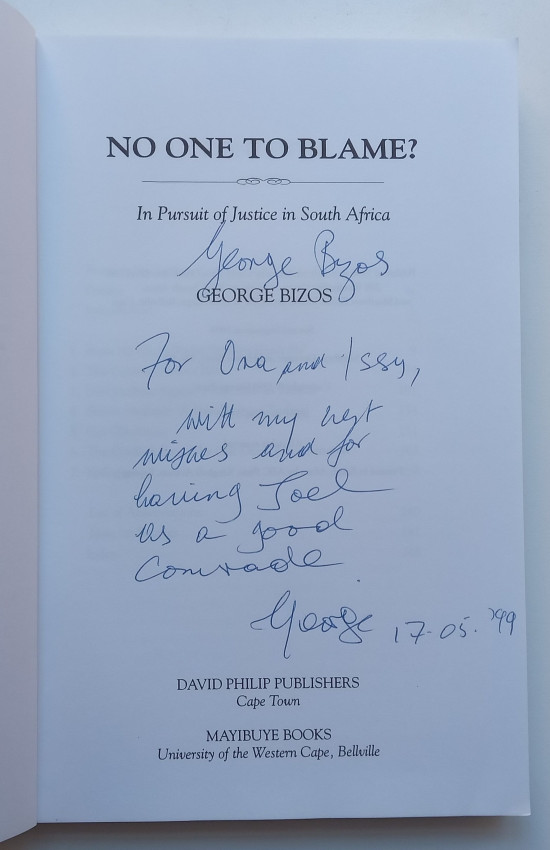 NO ONE TO BLAME?
In Pursuit of Justice in South Africa
George Bizos
GEORGE BIZOS
For Ora and Issy,
with my best
wishes and for
having Joel
as a good
Comrade.
George 17-05.'99
DAVID PHILIP PUBLISHERS
Cape Town
MAYIBUYE BOOKS
University of the Western Cape, Bellville